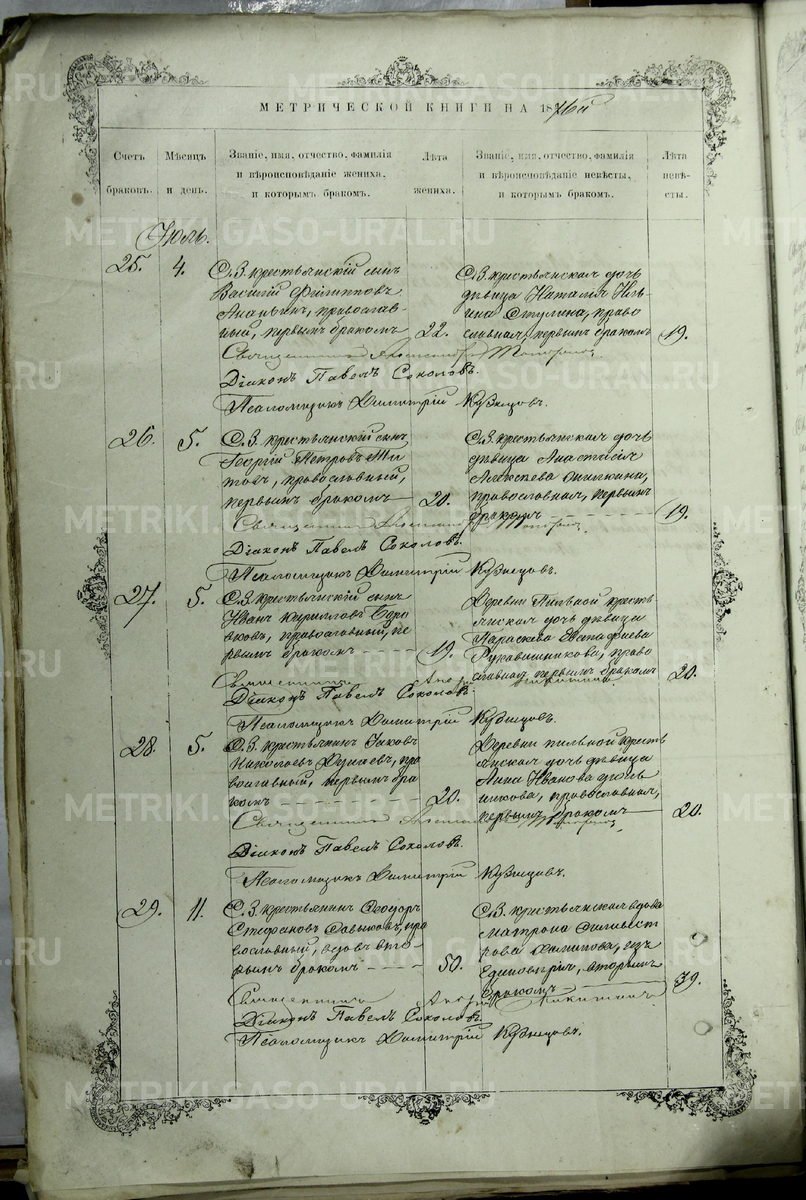 МЕТРИЧЕСКОЙ КНИГИ НА 1876й
Счетъ браковъ.
Мѣсяцъ и день.
Званіе, имя, отчество, фамилія и вѣроисповѣданіе жениха, и которымъ бракомъ.
Лѣта жениха.
Званіе, имя, отчество, фамилія и вѣроисповѣданіе невѣсты, и которымъ бракомъ.
Лѣта невѣсты.
Июль.
25. 4.
С.З. крестьянскій сынъ
Василій Филипповъ
православ-
ный, первымъ бракомъ
22.
С.З. крестьянская дочь
дѣвица Наталія Иль-
ина Стулина, право
славная, первымъ бракомъ
19.
Священникъ Топорков
Діаконъ Павелъ Соколовъ.
Псаломщикъ Димитрій Кузнецовъ.
26. 5.
С.З. крестьянскій сынъ
Георгій Петровъ Ти
товъ, православный,
первымъ бракомъ
20.
С.З. крестьянская дочь
дѣвица Анастасія
Алексѣева
православная, первымъ
бракомъ
19.
Священникъ
Діаконъ Павелъ Соколовъ.
Псаломщикъ Димитрій Кузнецовъ.
27. 5.
С.З. крестьянскій сынъ
Иванъ Кирилловъ Боро
вковъ, православный, пе
рвымъ бракомъ
19.
Деревни Пильной кресть-
янская дочь дѣвица
Параскева Евстафиева
Рукавишникова, право
славная, первымъ бракомъ
20.
Священникъ
Діаконъ Павелъ Соколовъ.
Псаломщикъ Димитрій Кузнецовъ.
28. 5.
С.З. крестьянинъ Іаковъ
Николаевъ Дунаевъ, пра
вославный, первымъ бра
комъ
20.
Деревни Пильной кресть
янская дочь дѣвица
Анна Иванова
православная,
первымъ бракомъ
20.
Священникъ
Діаконъ Павелъ Соколовъ.
Псаломщикъ Димитрій Кузнецовъ.
29. 11.
С.З. крестьянинъ Ѳеодоръ
Стефановъ Давыдовъ, пра
вославный, вдовъ вто-
рымъ бракомъ
50.
С.З. крестьянская вдова
Матрона Сильвест
рова изъ
Единовѣрія, вторымъ
бракомъ
39.
Священникъ Никитинъ
Діаконъ Павелъ Соколовъ.
Псаломщикъ Димитрій Кузнецовъ.
METRIKI.GASO-URAL.RU